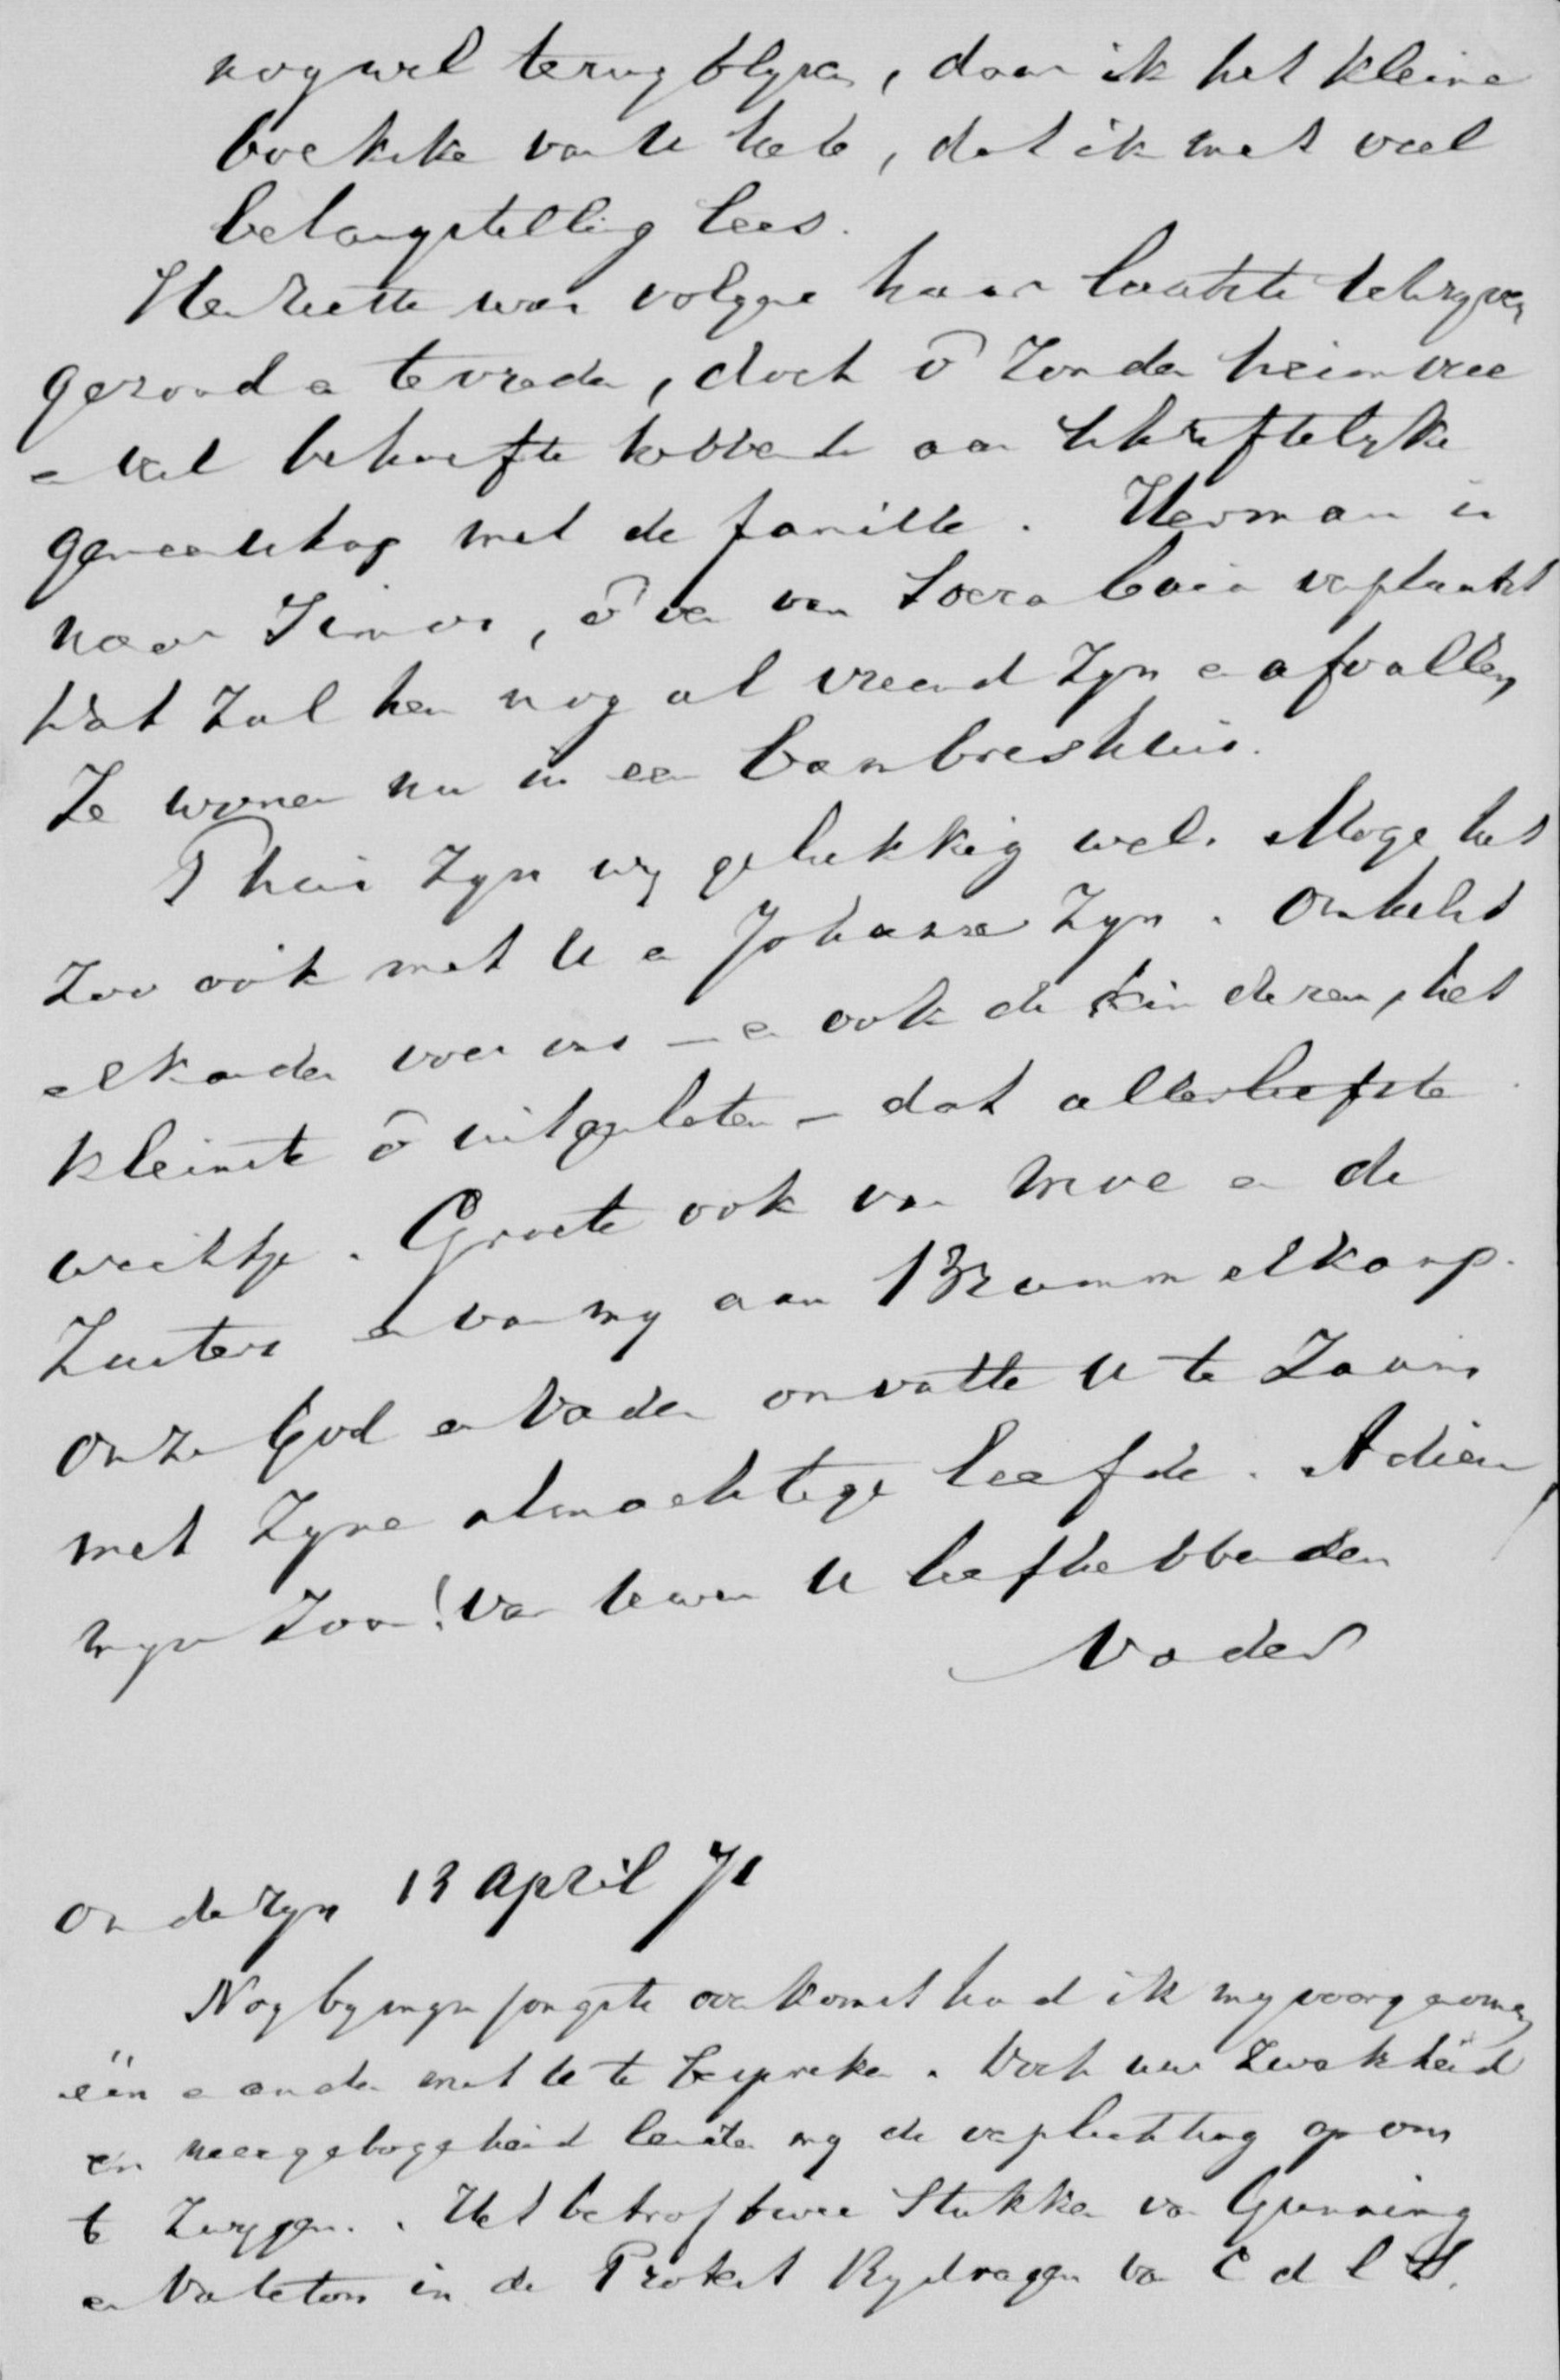 nog wel terug blyven, daar ik het kleine
boekske van U heb, dat ik met veel
belangstelling lees.
Henriette was volgens haar laatste schryven
gezond en tevreden, doch õ zonder heimwee
en veel behoefte hebbende aan schriftelyke
gemeenschap met de familie. Herman is
naar Timor, õ ver van Soerabaia verplaatst
Dat zal hen nog al vreemd zyn en afvallen,
Ze wonen nu in een bamboeshuis.
Thuis zyn wy gelukkig wel. Moge het
zoo ook met U en Johanna zyn. Omhelst
elkander voor ons – en ook de kinderen, het
kleinste õ uitgesloten – dat allerliefste
wichtje. Groete ook van Moe en de
Zusters en van my aan Brummelkamp.
Onze God en Vader omvatte U te zaam
met Zyne almachtige liefde. Adieu,
myn Zoon! Van Uwen U liefhebbenden
Vader
On derzyn 13 April 71
Nog by myn jongste overkomst had ik my voorgenomen
één en ander met U te bespreken. Doch uw Zwakheid
en neergebogenheid leiden my de verplichting op om
te zwygen. Het betrof twee Stukken van Gunning
en Valeton in de Protest Bydragen van C d l S.